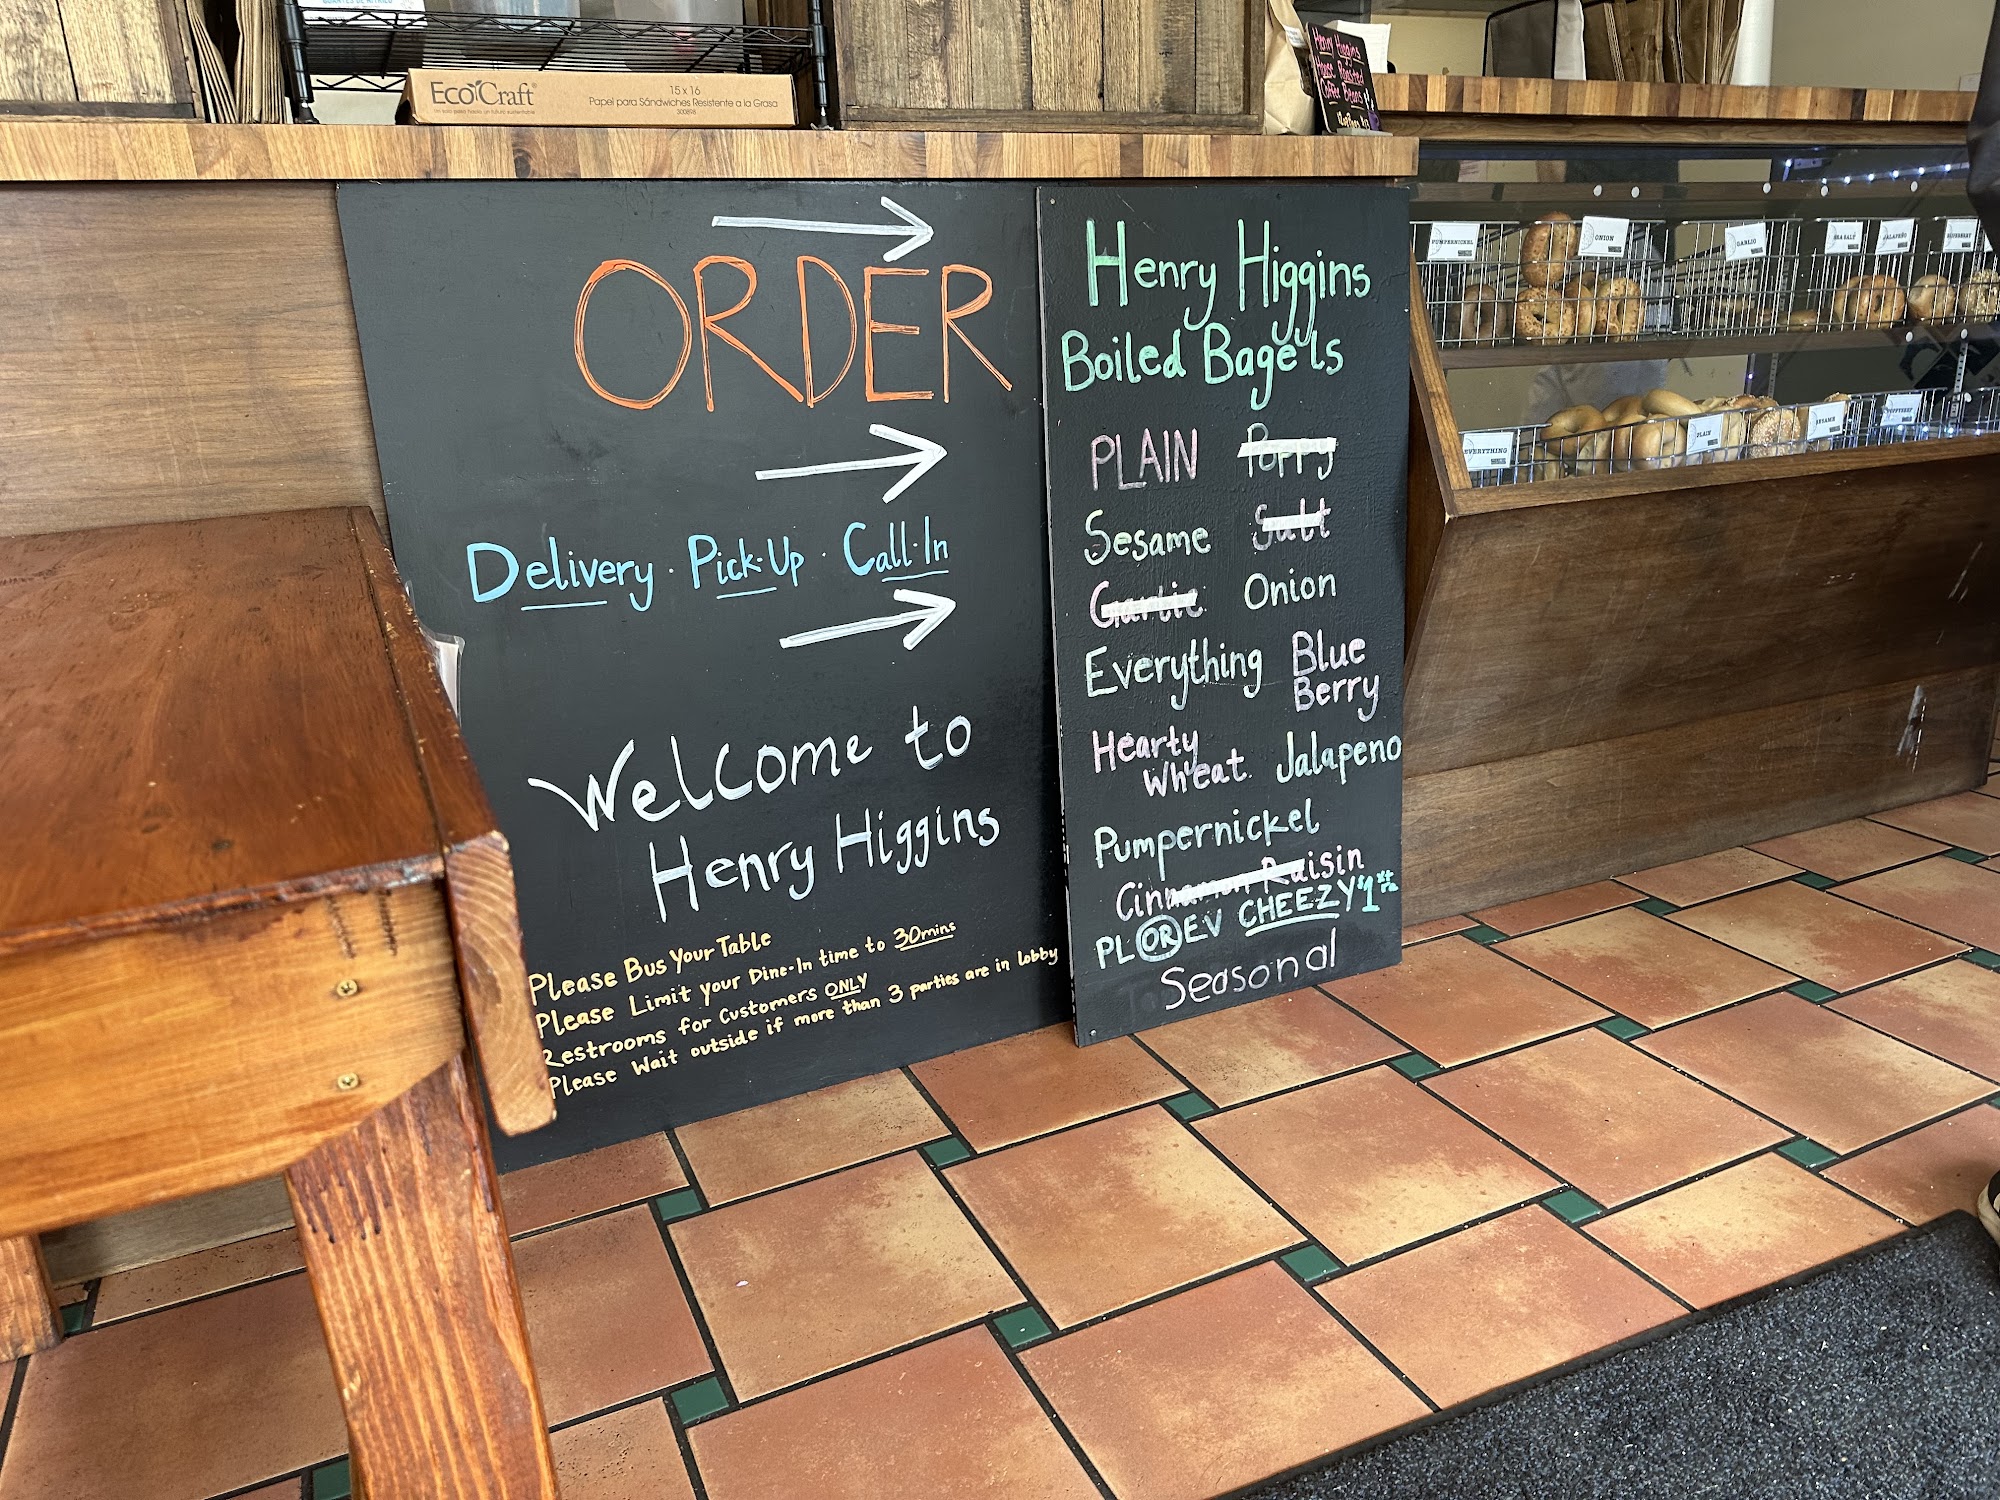 EcoCraft
15 x 16
Papel para Sándwiches Resistente a la Grasa
300898
Henry Higgins
House Roasted
Coffee Beans
ORDER
Delivery · Pick-Up · Call-In
Welcome to
Henry Higgins
Please Bus Your Table
Please Limit your Dine-In time to 30mins
Restrooms for Customers ONLY
Please Wait outside if more than 3 parties are in lobby
Henry Higgins
Boiled Bagels
PLAIN Poppy
Sesame Salt
Garlic Onion
Everything Blue Berry
Hearty Wheat Jalapeno
Pumpernickel
Cinnamon Raisin
PL OR EV CHEEZY $1
Seasonal
PUMPERNICKEL
ONION
GARLIC
SEA SALT
JALAPEÑO
BLUEBERRY
EVERYTHING
PLAIN
SESAME
POPPYSEED